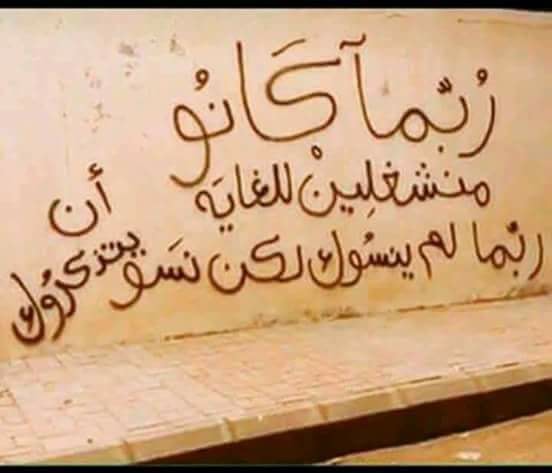 رُبّمآ كَانُو
منشغلِينْ للغايَه
ربّما لم ينسُوك لكن نسَو أن يتذكرُوك